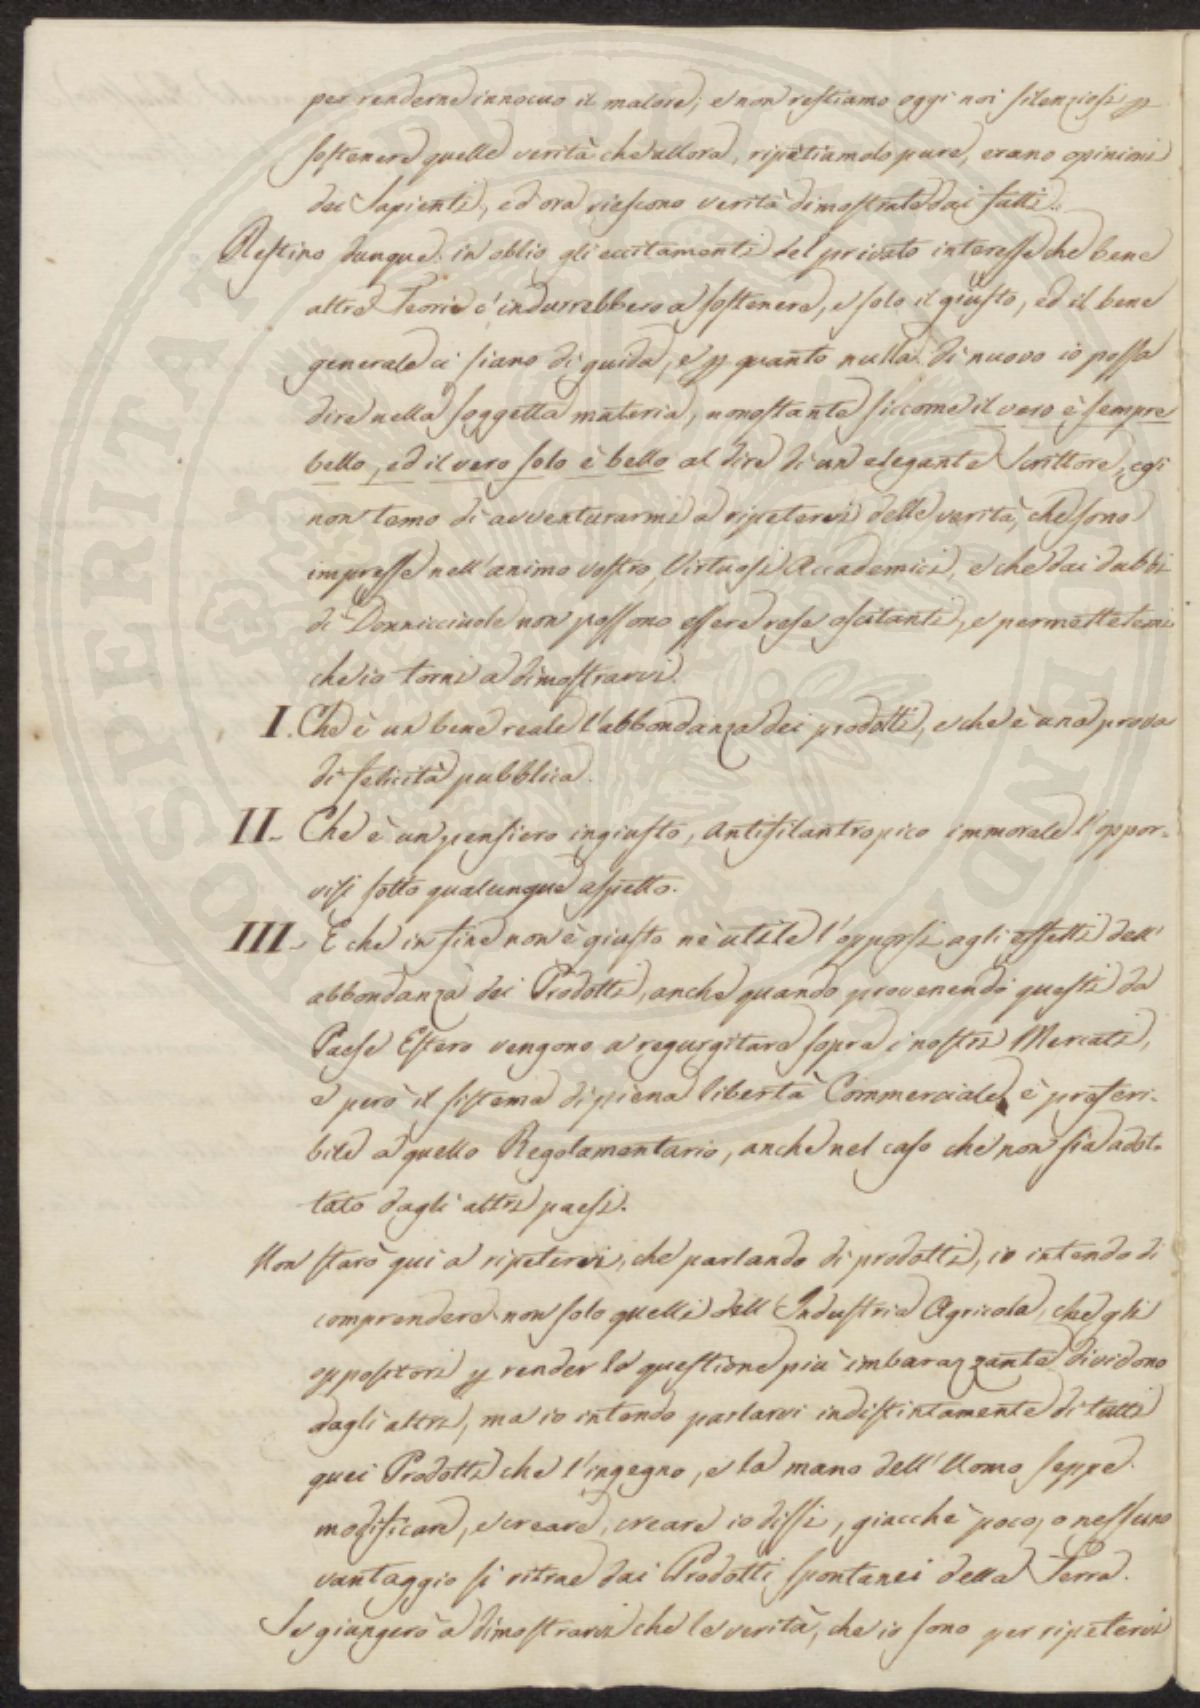 per renderne innocuo il malore; e non restiamo oggi noi silenziosi p
sostenere quelle verità che allora, ripetiamolo pure, erano opinioni
dei Sapienti, ed ora riescono verità dimostrate dai fatti.
Restino dunque in oblio gli eccitamenti del privato interesse che bene
altre Teorie c'indurrebbero a sostenere, e solo il giusto, ed il bene
generale ci siano di guida, e p quanto nulla di nuovo io possa
dire nella soggetta materia, nonostante siccome il vero è sempre
bello, ed il vero solo è bello al dire di un elegante Scrittore, egli
non temo di avventurarmi a ripetervi delle verità, che sono
impresse nell'animo vostro Virtuosi Accademici, e che dai dubbi
di Donnicciuole non possono essere rese esitanti, e permettetemi
che io torni a dimostrarvi.
I. Che è un bene reale l'abbondanza dei prodotti, e che è una prova
di felicità pubblica.
II. Che è un pensiero ingiusto, antifilantropico immorale l'oppor-
visi sotto qualunque aspetto.
III. E che in fine non è giusto nè utile l'opporsi agli effetti dell'
abbondanza dei Prodotti, anche quando provenendo questi da
Paese Estero vengono a regurgitare sopra i nostri Mercati,
e però il sistema di piena libertà Commerciale è preferi-
bile a quello Regolamentario, anche nel caso che non sia adot-
tato dagli altri paesi.
Non starò qui a ripetervi, che parlando di prodotti, io intendo di
comprendere non solo quelli dell'Industria Agricola, che gli
oppositori p render la questione più imbarazzante dividono
dagli altri, ma io intendo parlarvi indistintamente di tutti
quei Prodotti che l'ingegno, e la mano dell'Uomo seppe
modificare, e creare, creare io dissi, giacchè poco, o nessuno
vantaggio si ritrae dai Prodotti spontanei della Terra.
Se giungerò a dimostrarvi che le verità, che io sono per ripetervi
PROSPERITATI PUBLICAE AUGENDAE